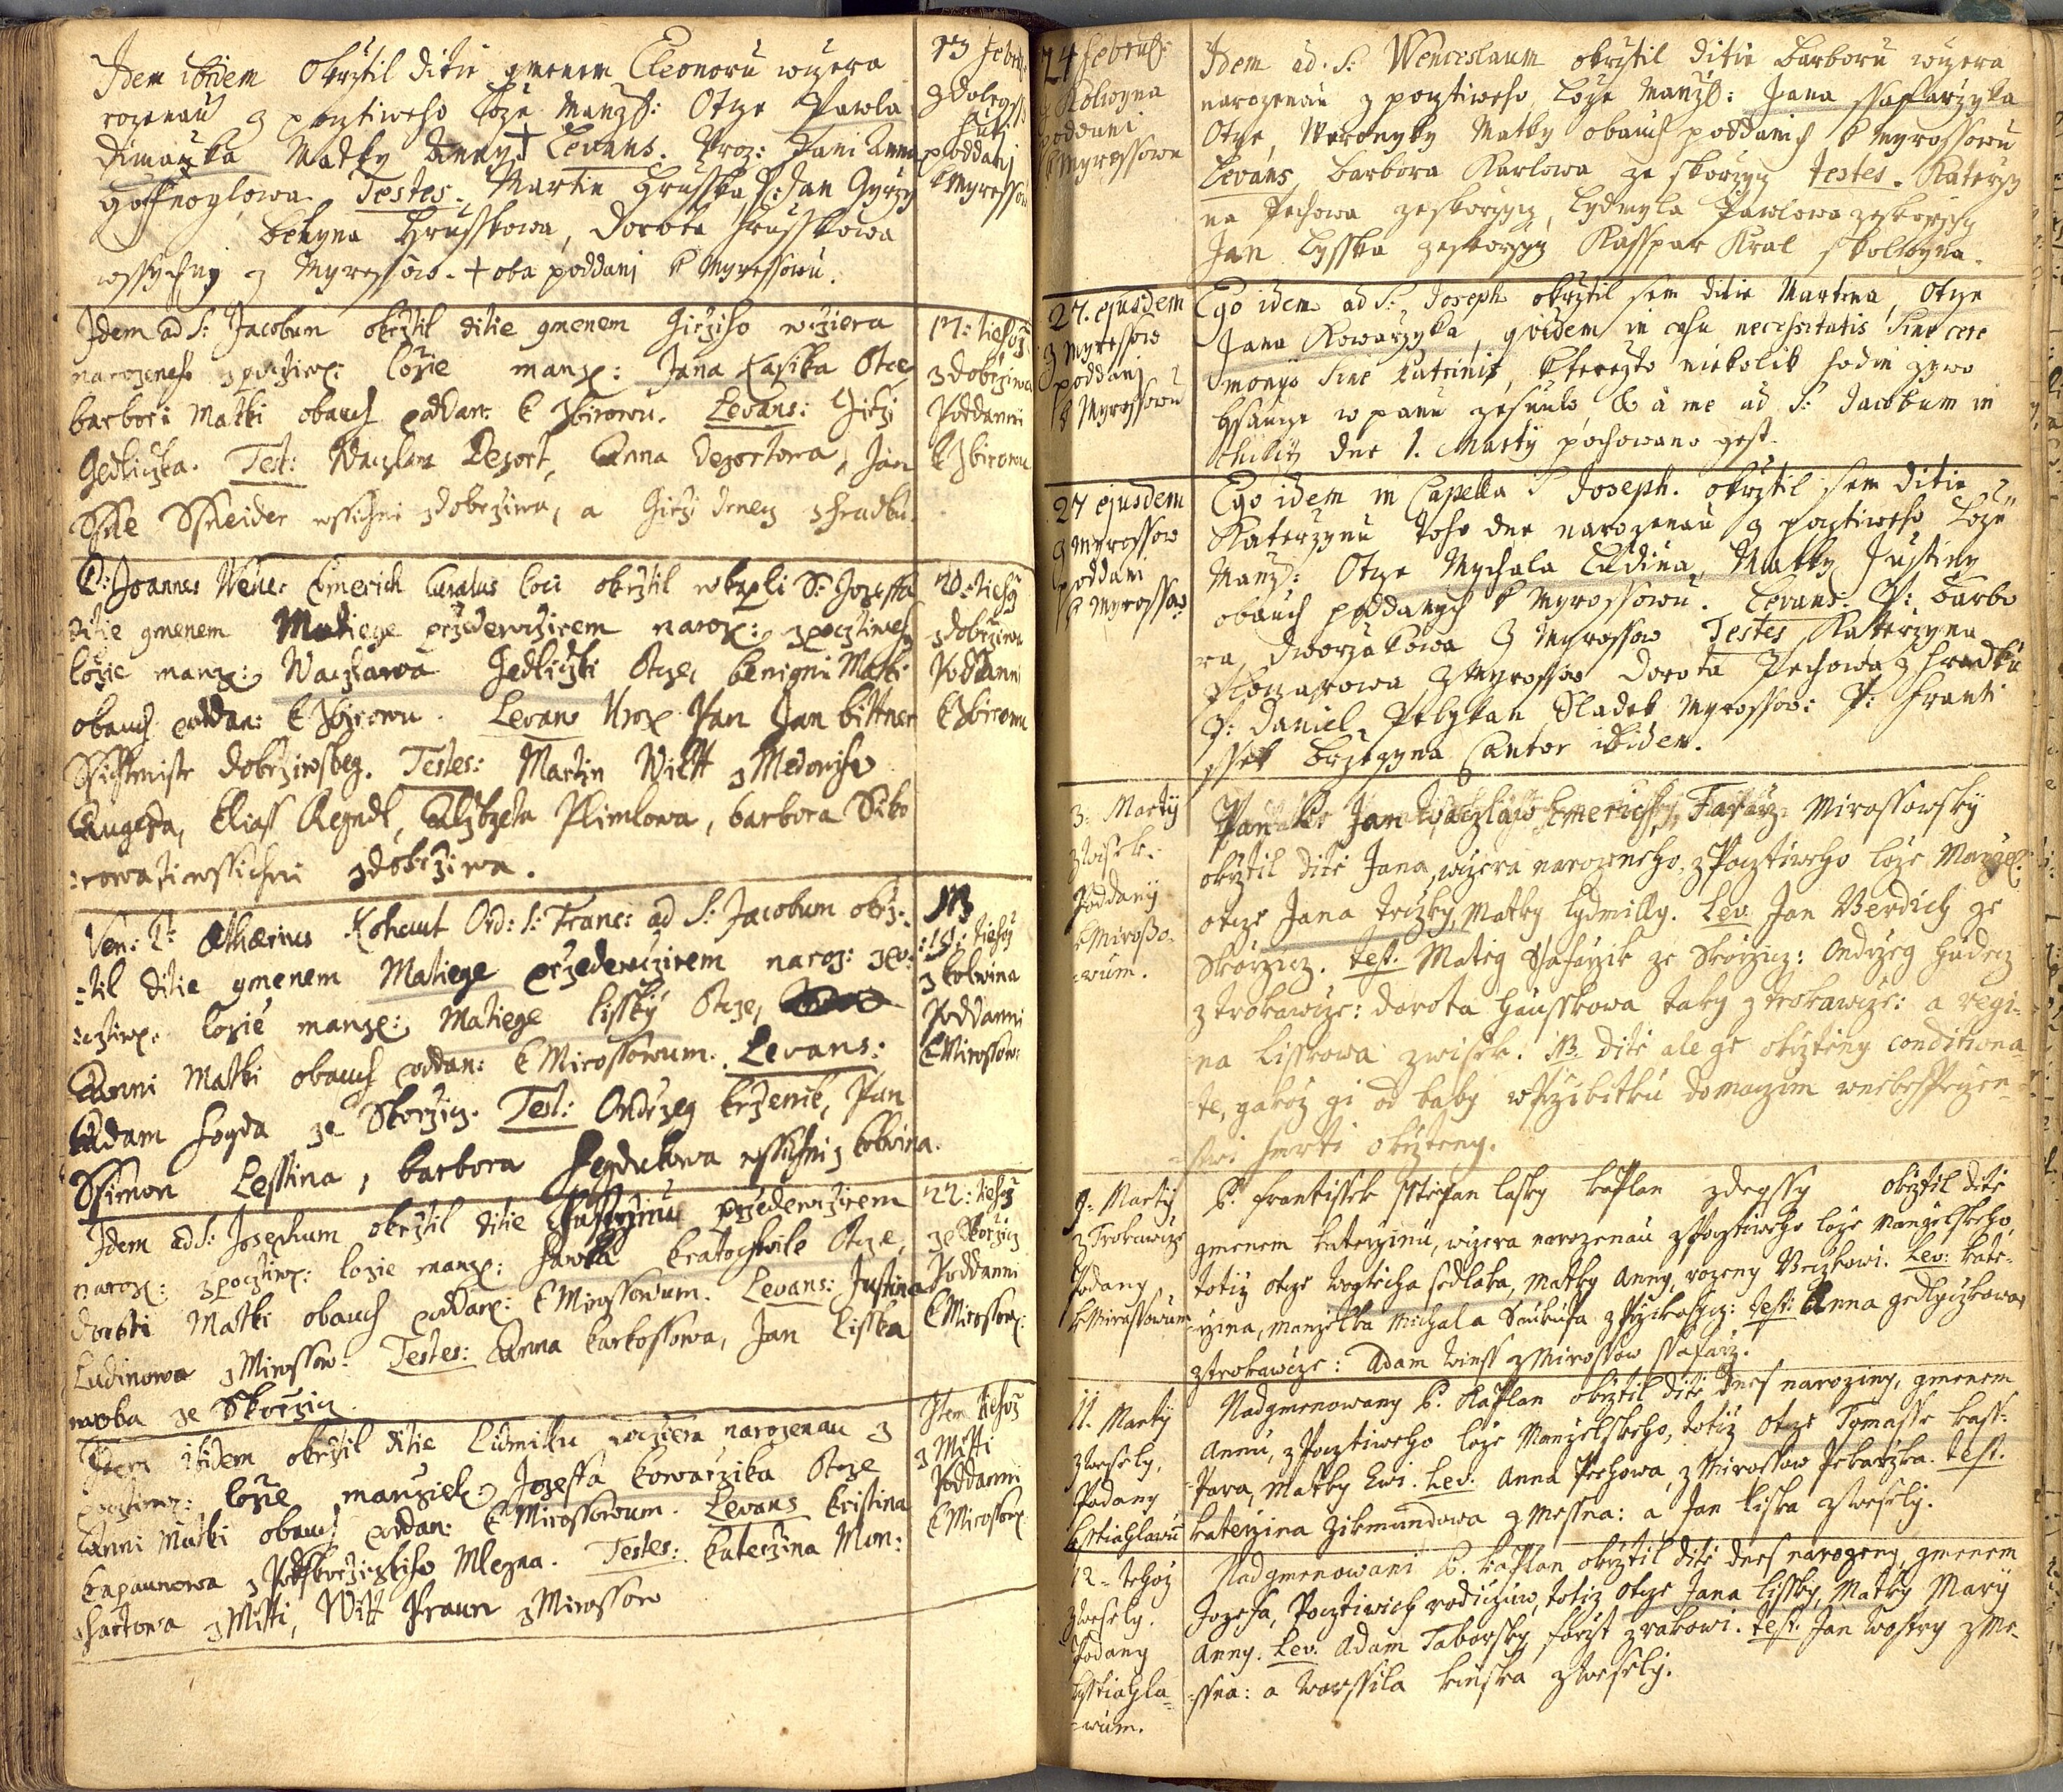 Idem ibidem okrztil ditie gmenem Eleonoru wczera
rozenau z pocztiweho Loze Manzs: Otcze Pawla
Dimaczka Matky Anny + Levans. Uroz: Pani Anna
Testes. Martin Hrusska, P: Jan Gyrzy
Hrusskowa, Dorota Hrusskowa
wssyckny z Myrossow. + oba poddani k Myrossowu.
17 Febr:
poddani
k Myrossow
Idem ad S: Jacobum okrztil ditie gmenem Girziho wcziera
narozeneho z pocztiw: lozie manz: Jana Otce
barbori Matki obauch poddan: k Zbirowu. Levans: Girzi
Gedliczka. Test: Waczlaw Dezort, Anna Dezortowa, Jan
Sneider wssichni z dobrziwa, a Girzi z hradku.
17: tiehoz
z dobrziwa
Poddanni
k Zbirowu
P: Joannes Wenc: Emerich Curatus loci okrztil w kapli S: Jozeffa
ditie gmenem Matiege przederwczirem naroz: z pocztiweh
lozie manz: Waczlawa Jedliczki Otcze, benigni Matki
obauch poddan: k Zbirowu. Levans Uroz: Pan Jan bittner
Ssichtmistr dobrziwskeg. Testes: Martin Witt z Medowiho
Augezda, Elias Regndl, Alzbzeta Plimlowa, barbora Siko
rowa ti wssichni z dobrziwa.
20: tiehoz
z dobrziwa
Poddanni
k Zbirowu
Ven: P: Kohaut Ord: S: Franc: ad S: Jacobum okrz=
=til ditie gmenem Matiege przederwczirem naroz: z po=
=cztiw: lozie manz: Matiege lissky Otcze,
Anni Matki obauch poddan: k Mirossowum. Levans:
Adam Hogda ze Skorzicz. Test: Ondrzeg krzenik, Pan
Ssimon Lesstina, barbora wssichni z kolwina.
NB
:19: tiehoz
z kolwina
Poddanni
k Mirossow:
Idem ad S: Josephum okrztil ditie przederwczirem
naroz: z pocztiw: lozie manz: Hawla kratochwile Otcze,
doroti Matki obauch poddan: k Mirossowum. Levans: Justina
Ludinowa z Mirossow: Testes: Anna karkossowa, Jan lisska
oba ze Skorzicz.
22: tiehoz
ze Skorzicz
Poddanni
k Mirossow:
Idem ibidem okrztil ditie Lidmilu wcziera narozenau z
pocztiw: lozie manziels: Jozeffa kowarzika Otcze
Anni Matki obauch poddan: k Mirossowum. Levans kristina
kapaunowa z Podskorzickiho Mlegna. Testes: katerzina Mun:
hartowa z Misti, Witt Praun z Mirossow
Item tiehoz
z Misti
Poddanni
k Mirossow:
24 Febru:
z Kolwyna
poddani
k Myrossowu
Idem ad. S: Wenceslaum okrztil ditie Barboru wczera
narozenau z pocztiweho Loze Manzs: Jana Ssafarzyka
Otcze, Weronyky Matky obauch poddanich k Myrossowu
Levans, Barbora Karlowa ze Skorzycz Testes. Katerzy
na Pechowa ze Skorzycz, Lydmyla Pawlowa ze Skorzycz
Jan Lysska ze Skorzycz Kasspar Kral z kolwyna.
27. ejusdem
z Myrossow
poddani
k Myrossowu
Ego idem ad S: Joseph okrztil sem ditie Martina, Otcze
Jana Kowarzyka, quidem in casu necessitatis sine cere
monys sine, kterezto niekolik hodin zywo
w panu zesnulo, & a me ad S: Jacobum in
dne 1. Marty pochowano gest.
27 ejusdem
z Myrossow
poddani
k Myrossow:
Ego idem in Capella S Joseph. okrztil sem ditie
Katerzynu toho dne narozenau z pocztiweho Loze
Manz: Otcze Mychala Ludina, Matky Justiny
obauch poddanych k Myrossowu. Levans. P: Barbo
ra, Dworzakowa z Myrossow Testes, Katerzyna
z Myrossow Dorota Pechowa z Hradku
P: Daniel Sladek Myrossow: P: Franti
ssek Brzezyna Cantor ibidem.
3: Marty
z Wisek:
Poddany
k Mirosso=
=wum.
Pan Jan Waczlaw Emerich, Fararz Mirossowsky
okrztil dite Jana, wczera narozeneho, z Pocztiweho loze Manzel:
otcze Jana Trczky, Matky Lydmilly. Lev: Jan Verdich ze
Skorzicz. test. Matieg Ssafarzik ze Skorzicz: Ondrzeg Hudecz
z trokawcze: dorota Hausskowa taky z trokawcze: a regi=
=na Lisskowa z wisek. NB. dite ale ge okrzteny conditiona
te, gakoz gi od baby w Przibitku domaczim w nebesspeczen=
=stwi smrti okrzteny.
9: Marty
z Trokawcze
Podany
k Mirossowum
P. Frantissek Sstiepan lasky kaplan zdegssy okrztil dite
gmenem katerzinu, wczera narozenau z Pocztiweho loze Manzelskeho,
totiz otcze Wogtiecha sedlaka, matky Anny, rozeny Vlczkowi. Lev: kate=
rzina, manzelka Michala z Przikosycz: test: Anna gedlyczkowa
z trokawcze: Adam winss z Mirossow ssafarz.
11. Marty
z Wesely,
Podany
k Sstiahlawum
Nadgmenowany P. Kaplan okrztil dite dnes naroziny, gmenem
Annu, z Pocztiweho loze Manzelskeho, totiz Otcze Tomasse kass=
Para, Matky Ewi. Lev: Anna Pechowa, z Mirossow Pekarzka. test.
katerzina Zikmundowa z Messna: a Jan liska z Wesely.
12: tehoz
z wesely.
Podany
k Sstiahla=
=wum.
Nadgmenowani P. kaplan okrztil dite dnes narozeny, gmenem
Jozefa, Pocztiwich rodiczuw, totiz otcze Jana lissky, Matky Mary
Anny. Lev: Adam Taborsky, forst z rakowi. test. Jan Wostry z Me=
=ssna: a Worssila kinska z Wesely.